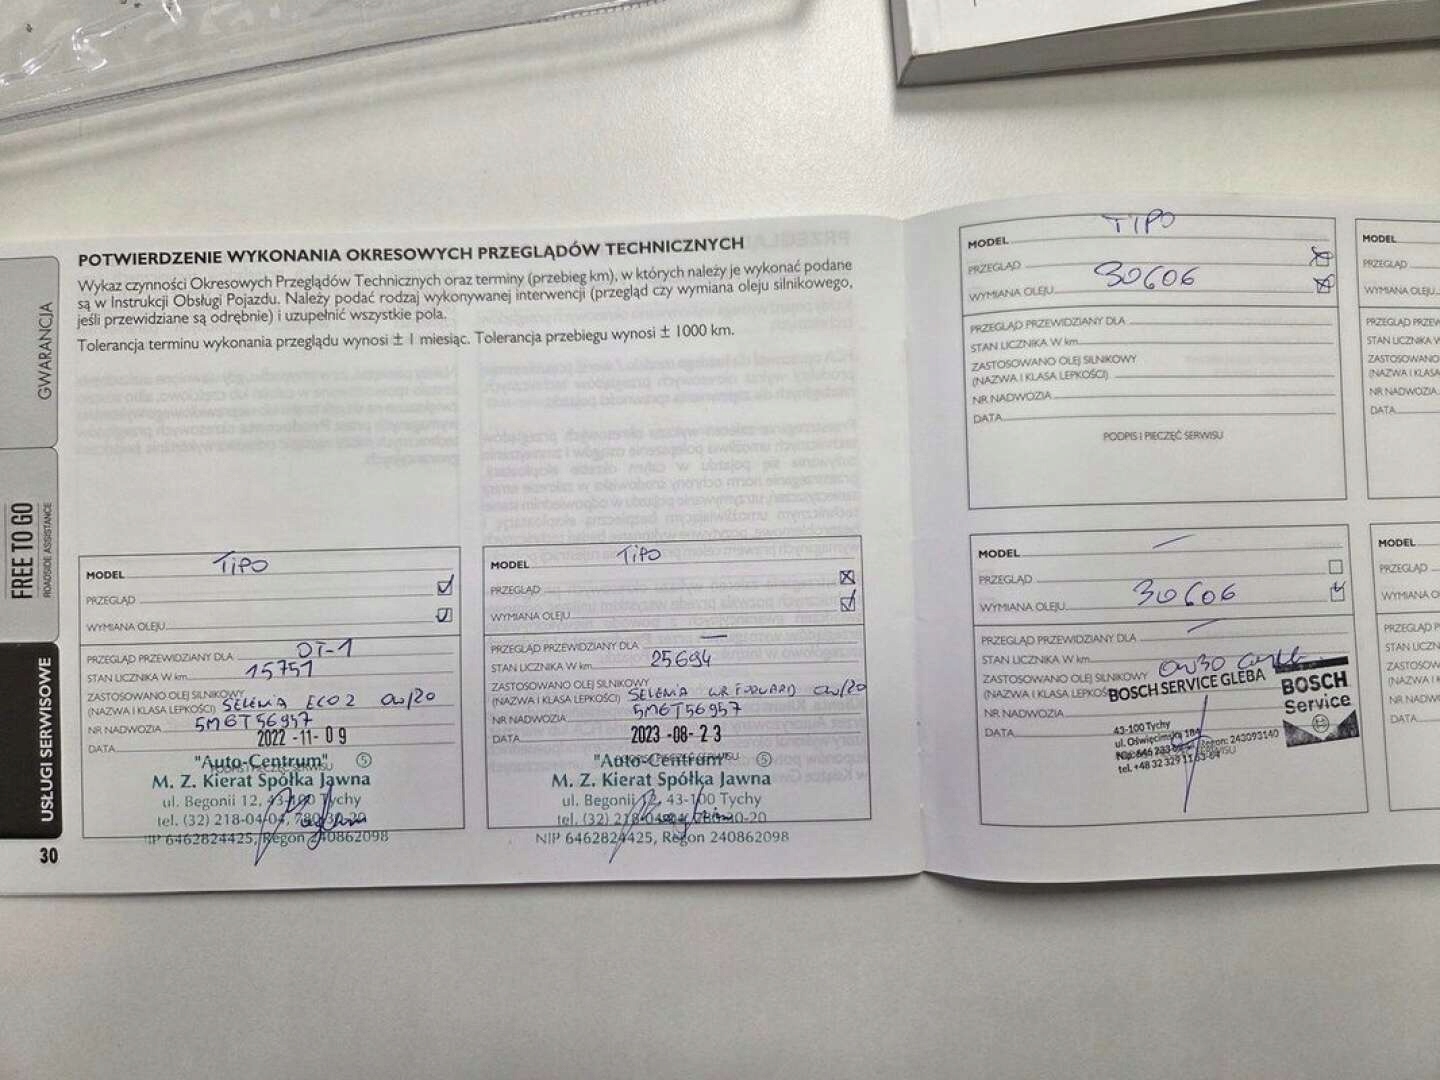 GWARANCJA
FREE TO GO
ROADSIDE ASSISTANCE
USŁUGI SERWISOWE
30
POTWIERDZENIE WYKONANIA OKRESOWYCH PRZEGLĄDÓW TECHNICZNYCH
Wykaz czynności Okresowych Przeglądów Technicznych oraz terminy (przebieg km), w których należy je wykonać podane
są w Instrukcji Obsługi Pojazdu. Należy podać rodzaj wykonywanej interwencji (przegląd czy wymiana oleju silnikowego,
jeśli przewidziane są odrębnie) i uzupełnić wszystkie pola.
Tolerancja terminu wykonania przeglądu wynosi ± 1 miesiąc. Tolerancja przebiegu wynosi ± 1000 km.
MODEL TIPO
PRZEGLĄD
WYMIANA OLEJU
PRZEGLĄD PRZEWIDZIANY DLA OT-1
STAN LICZNIKA W km 15751
ZASTOSOWANO OLEJ SILNIKOWY
(NAZWA I KLASA LEPKOŚCI) SELENIA ECO2 0W/20
NR NADWOZIA 5M6T56957
DATA 2022-11-09
"Auto-Centrum" 5
M. Z. Kierat Spółka Jawna
ul. Begonii 12, 43-100 Tychy
tel. (32) 218-04-04, 780-30-20
NIP 6462824425, Regon 240862098
MODEL TIPO
PRZEGLĄD
WYMIANA OLEJU
PRZEGLĄD PRZEWIDZIANY DLA —
STAN LICZNIKA W km 25694
ZASTOSOWANO OLEJ SILNIKOWY
(NAZWA I KLASA LEPKOŚCI) SELENIA WR FORWARD 0W/20
NR NADWOZIA 5M6T56957
DATA 2023-08-23
"Auto-Centrum" 5
M. Z. Kierat Spółka Jawna
ul. Begonii 12, 43-100 Tychy
tel. (32) 218-04-04, 780-30-20
NIP 6462824425, Regon 240862098
MODEL TIPO
PRZEGLĄD
WYMIANA OLEJU 30606
PRZEGLĄD PRZEWIDZIANY DLA
STAN LICZNIKA W km
ZASTOSOWANO OLEJ SILNIKOWY
(NAZWA I KLASA LEPKOŚCI)
NR NADWOZIA
DATA
PODPIS I PIECZĘĆ SERWISU
MODEL —
PRZEGLĄD
WYMIANA OLEJU 30606
PRZEGLĄD PRZEWIDZIANY DLA —
STAN LICZNIKA W km
ZASTOSOWANO OLEJ SILNIKOWY 0W30
(NAZWA I KLASA
NR NADWOZIA
DATA
BOSCH SERVICE GLEBA
43-100 Tychy
ul. Oświęcimska 184
Regon: 243093140
tel. +48 32 329 11 63-64
BOSCH
Service
MODEL
PRZEGLĄD
WYMIANA OLEJU
PRZEGLĄD
STAN LICZNIKA W
ZASTOSOWANO
(NAZWA I KLASA
NR NADWOZIA
DATA
MODEL
PRZEGLĄD
WYMIANA
PRZEGLĄD
STAN
(NAZWA I
NR
DATA